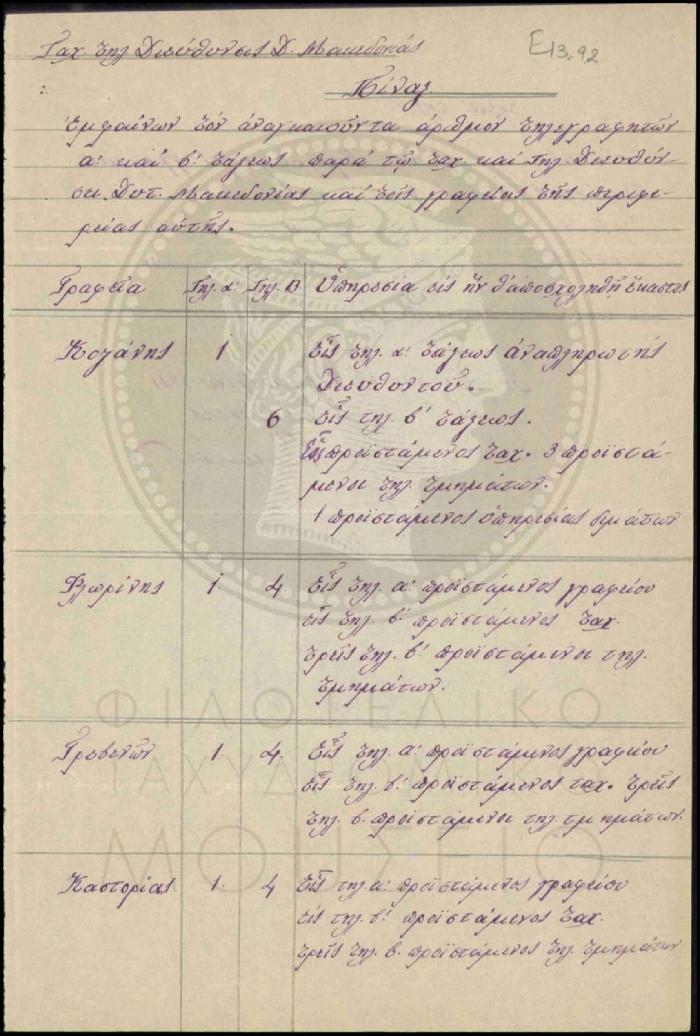 Ταχ. Τηλ. Διεύθυνσις Δ. Μακεδονίας
Ε13.92
Πίναξ
Ἐμφαίνων τὸν ἀναγκαιοῦντα ἀριθμὸν τηλεγραφητῶν
α' καὶ β' τάξεως παρὰ τῇ ταχ. καὶ Τηλ. Διευθύν-
σει Δυτ. Μακεδονίας καὶ τοῖς γραφείοις τῆς περιφε-
ρείας αὐτῆς.
Γραφεῖα Τηλ. α' Τηλ. Β Ὑπηρεσία εἰς ἣν θ' ἀποσχοληθῇ ἕκαστος
Κοζάνης 1 Εἷς τηλ. α' τάξεως ἀναπληρωτὴς
Διευθυντοῦ.
6 Εἷς τηλ. β' τάξεως.
Εἷς προϊστάμενος ταχ. 3 προϊστά-
μενοι τηλ. τμημάτων.
1 προϊστάμενος ὑπηρεσίας δεμάτων
Φλωρίνης 1. 4. Εἷς τηλ. α' προϊστάμενος γραφείου
εἷς τηλ. β' προϊστάμενος ταχ.
τρεῖς τηλ. β' προϊστάμενοι τηλ.
τμημάτων.
Γρεβενῶν 1. 4. Εἷς τηλ. α' προϊστάμενος γραφείου
εἷς τηλ. β' προϊστάμενος ταχ. τρεῖς
τηλ. β. προϊστάμενοι τηλ. τμημάτων.
Καστορίας 1. 4 Εἷς τηλ. α' προϊστάμενος γραφείου
εἷς τηλ. β' προϊστάμενος ταχ.
τρεῖς τηλ. β. προϊστάμενοι τηλ. τμημάτων
ΦΙΛΟΤΕΛΙΚΟ
ΤΑΧΥΔΡΟΜΙΚΟ
ΜΟΥΣΕΙΟ